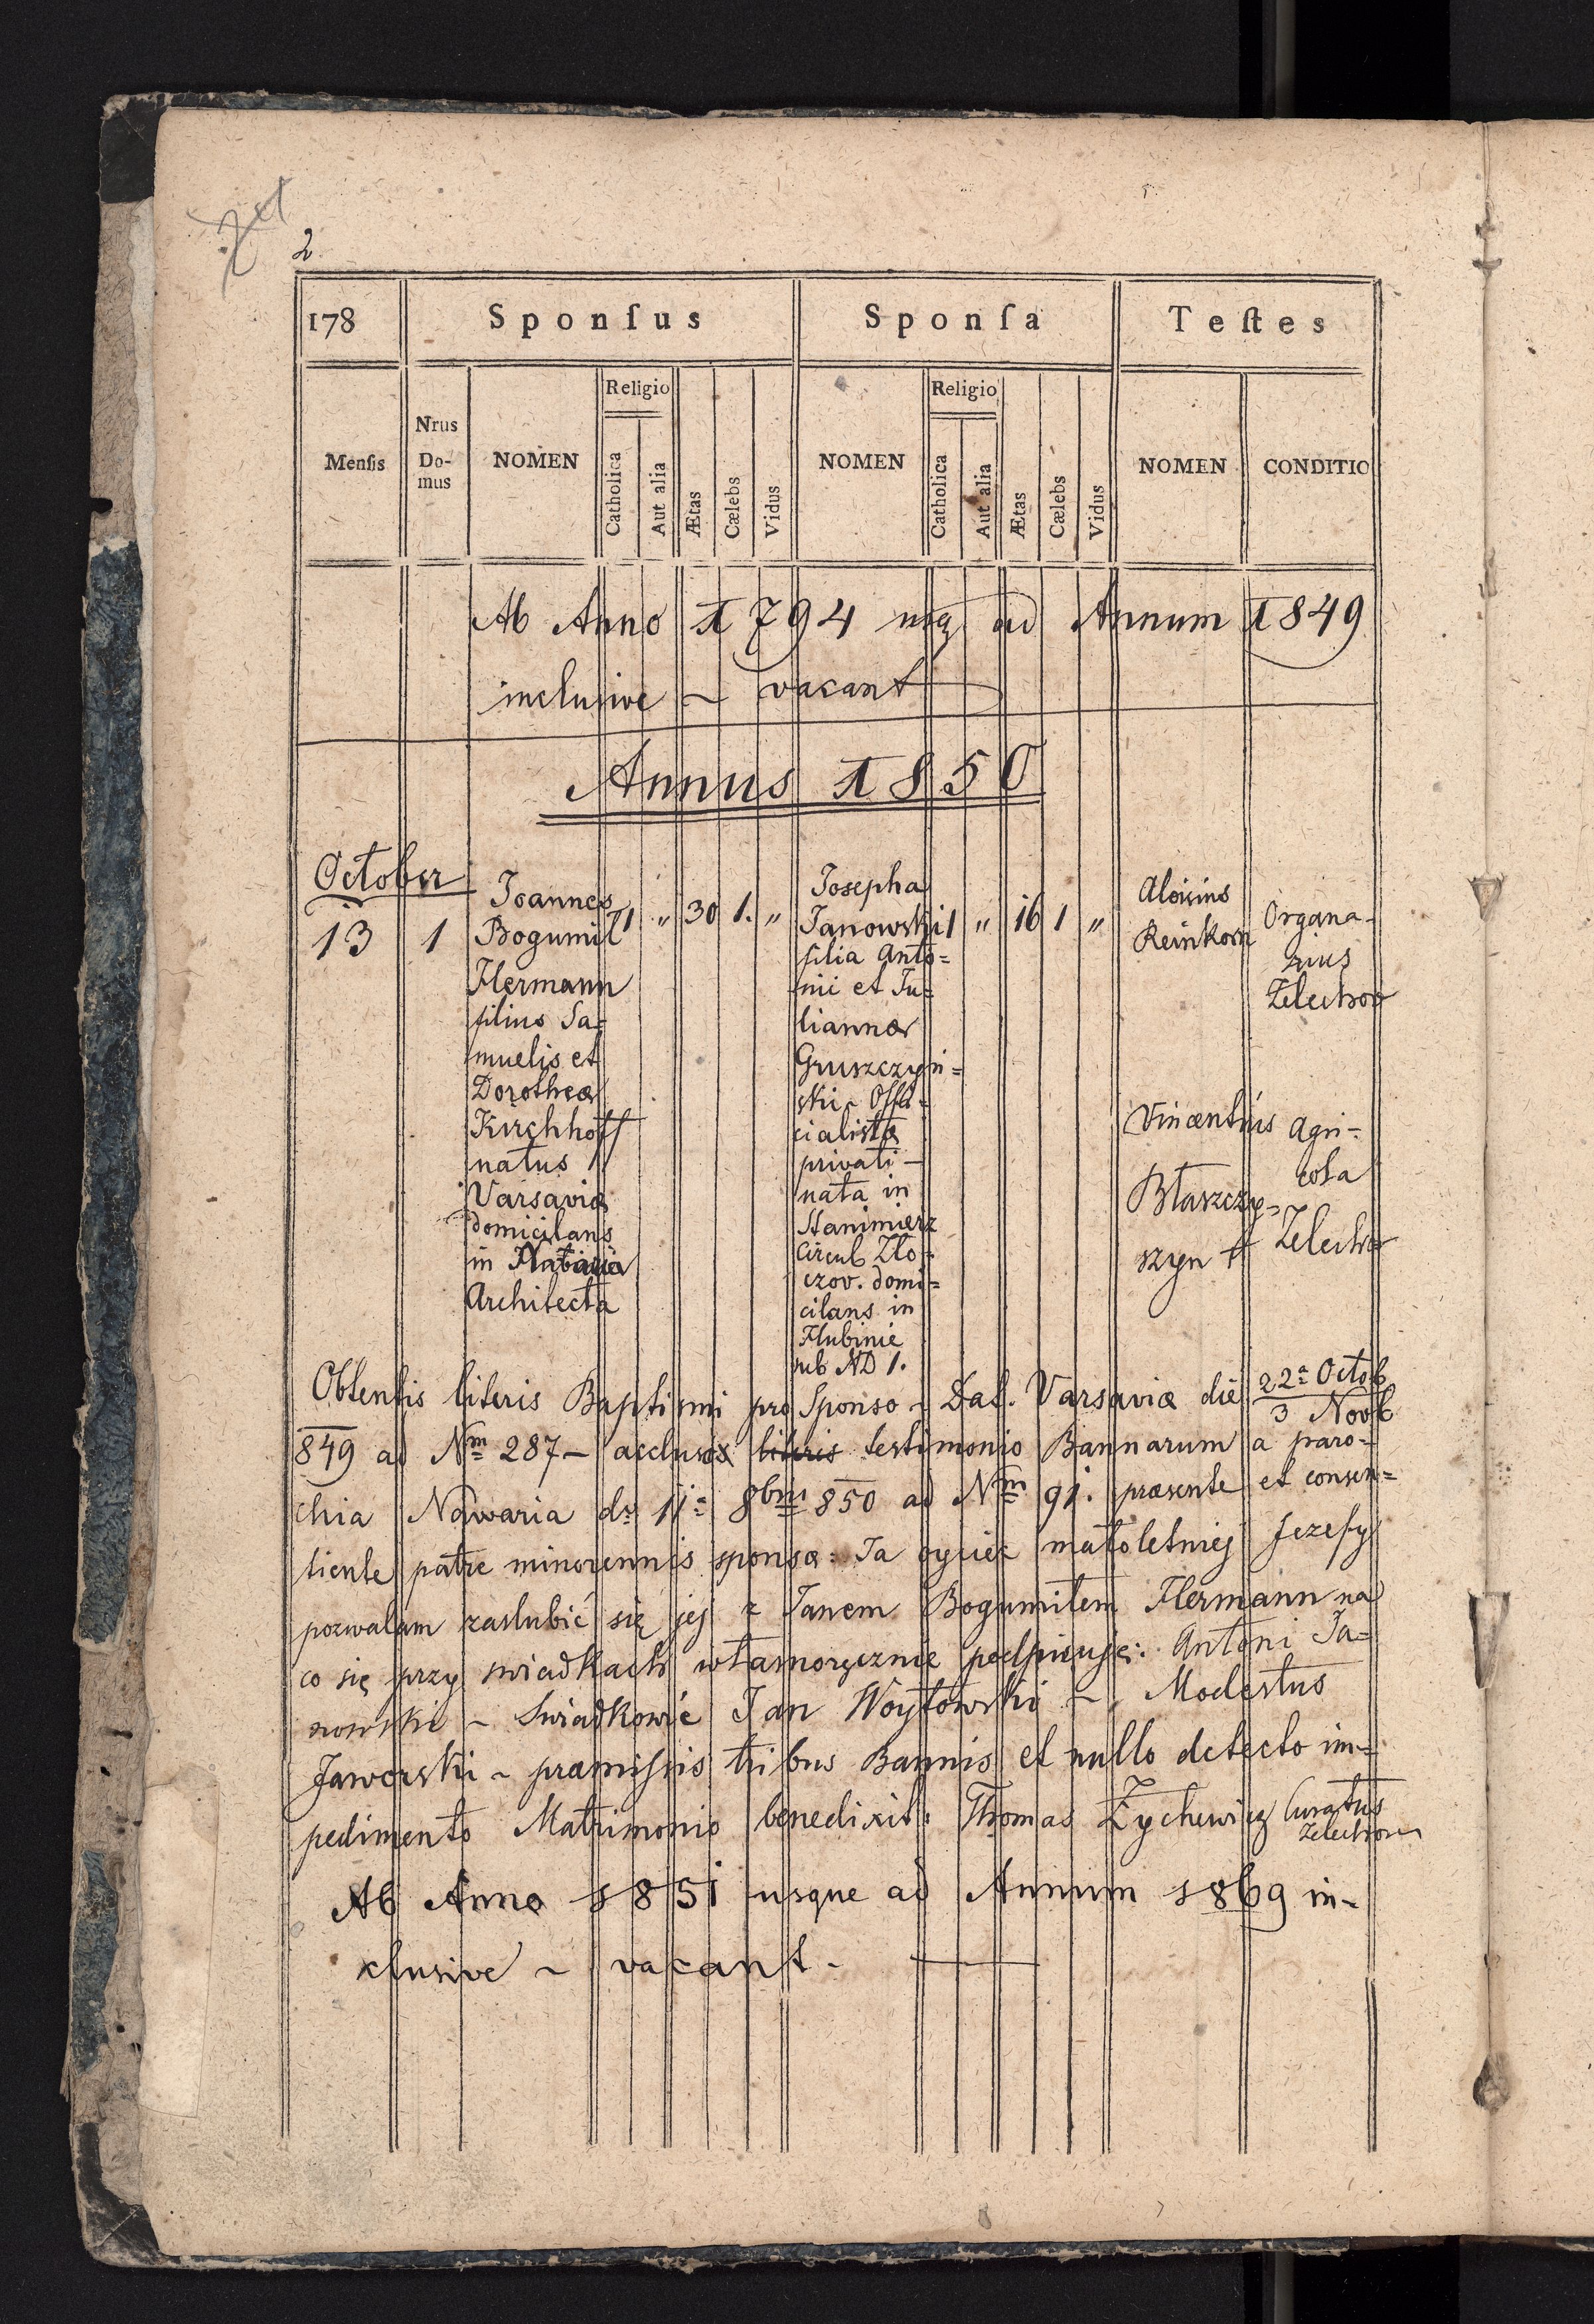 2
178
Sponſus
Sponſa
Teſtes
Menſis
Nrus
Do-
mus
NOMEN
Religio
Catholica
Aut alia
Ætas
Cælebs
Vidus
NOMEN
Religio
Catholica
Aut alia
Ætas
Cælebs
Vidus
NOMEN
CONDITIO
Ab Anno 1794 usq ad Annum 1849
inclusive ~ vacant
Annus 1850
October
13
1
Joannes
Bogumił
Hermann
filius Sa=
muelis et
Dorothea
Kirchhoff
natus
Varsavia
domicilans
in
Architecta
1 " 30 1. "
Josepha
Janowski
filia Anto=
nii et Ju=
lianna
Gruszczyń=
ski ~ Offi-
cialista
privati -
nata in
Hanimierz
Circul Zło-
czov. domi=
cilans in
Hubinie
sub ND 1.
1 " 16 1 "
Aloisius
Reinkorn
Organa-
rius
Zelechow
Vincentius
Błaszczy=
szyn +
Agri=
cola
Zelechow
Obtentis literis Baptismi pro Sponso ~ Dat. Varsaviæ die 22a Octob
3 Novb
849 ad Nm 287 - acclusa literis testimonio Bannarum a paro=
chia Nawaria do 11a 8bris 850 ad Nm 91. præsente et consen=
tiente patre minorennis sponsæ: Ja oyciec małoletniej Jozefy
pozwalam zaslubić się jej z Janem Bogumiłem Hermann na
co się przy swiadkach własnoręcznie podpisuję: Antoni Ja=
nowski ~ Swiadkowie Jan Woytowski ~ Modestus
Jaworski ~ præmissis tribus Bannis et nullo detecto im=
pedimento Matrimonio benedixit: Thomas Zychewicz Curatus
Zelechow
Ab Anno 1851 usque ad Annum 1869 in-
clusive ~ vacant -